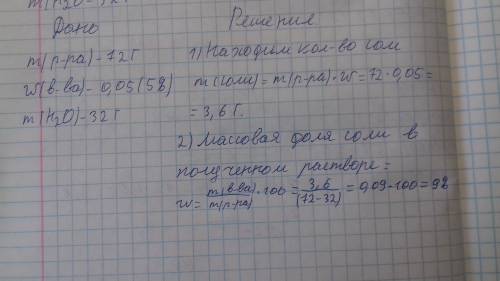 Дано
Решения
m(р-ра)-72г
w(в-ва)-0,05(5%)
m(H₂O)-32г
1) Находим кол-во соли
m(соли)=m(р-ра)·w=72·0,05=
=3,6г.
2) Массовая доля соли в
полученном растворе=
w=m(в-ва)/m(р-ра)·100=3,6/(72-32)=0,09·100=9%